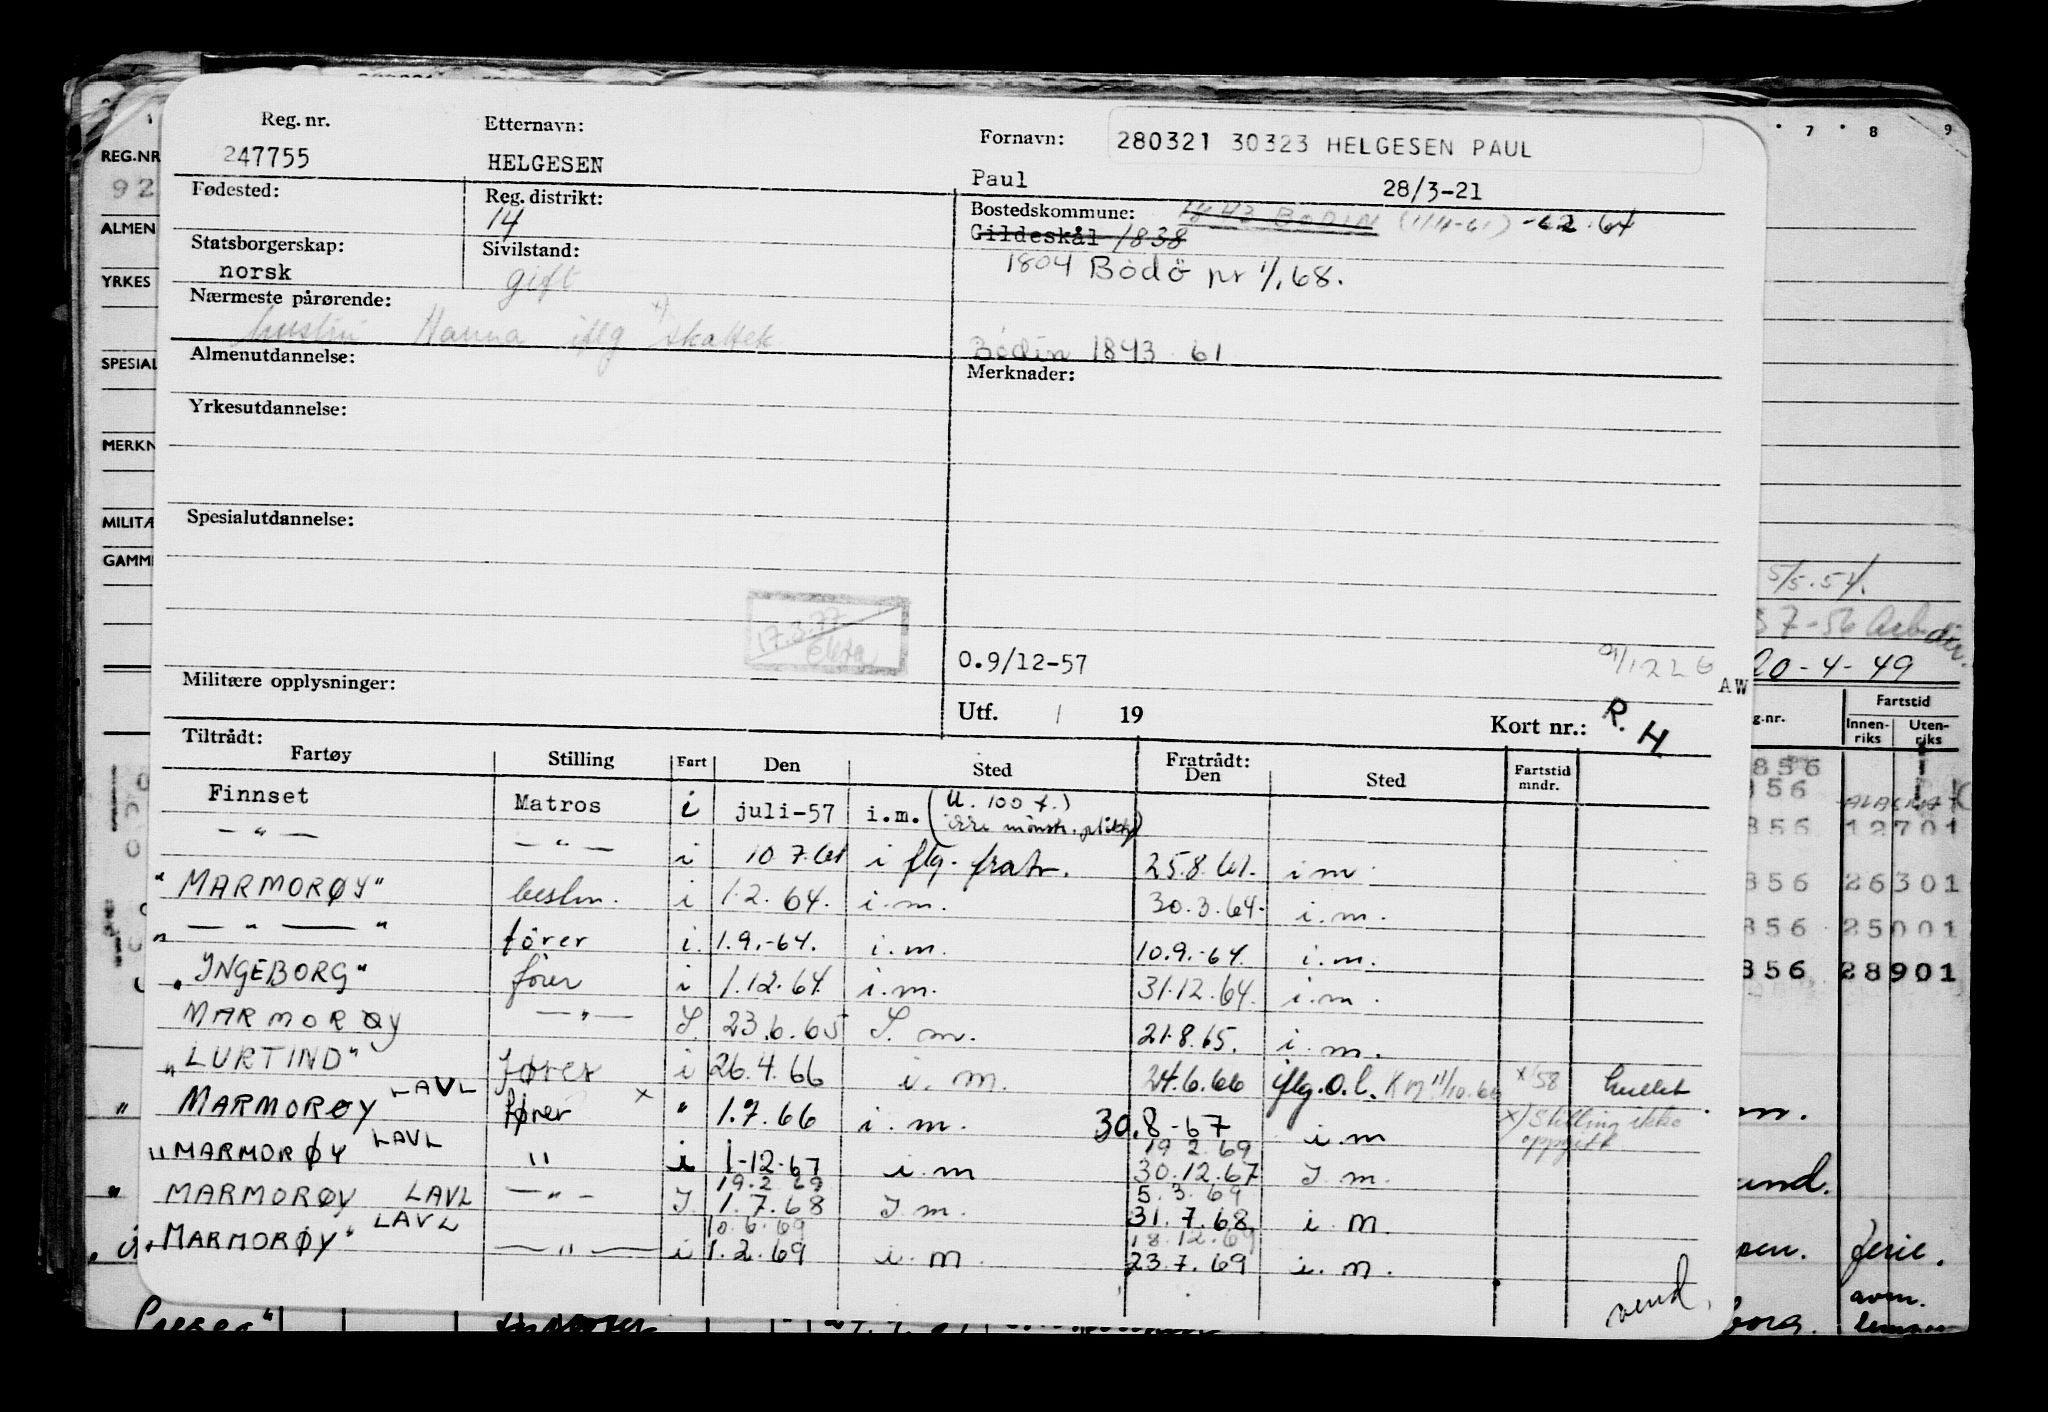 Reg. nr. Etternavn: Fornavn: 280321 30323 HELGESEN PAUL
247755 HELGESEN Paul 28/3-21
Fødested: Reg. distrikt: 14 Bostedskommune: 1843 BODIN (1/4-61) -62.64
Gildeskål 1838
Statsborgerskap: Sivilstand: 1804 Bodö pr 1/1.68.
norsk gift
Nærmeste pårørende:
hustru Hanna iflg x) skattek Bodin 1843 61
Almenutdannelse: Merknader:
Yrkesutdannelse:
Spesialutdannelse:
17.3.77
0.9/12-57
AW
Militære opplysninger:
Utf. / 19 Kort nr.: R. H
Tiltrådt: Fratrådt:
Fartøy Stilling Fart Den Sted Den Sted Fartstid mndr.
Finnset Matros i juli-57 i.m. (U. 100 t.) ikke mönstr. pliktig
— " — — " — i 10 7.61 i flg. fratr. 25.8.61. i m
"MARMORØY" bestm. i 1.2.64. i.m. 30.3.64. i.m.
" — " — " fører i. 1.9.-64. i.m. 10.9.-64. i.m.
"INGEBORG" fører i 1.12.64. i.m. 31.12.64. i.m.
MARMORØY — " — I. 23.6.65 I.m. 21.8.65. i.m.
"LURTIND" fører i 26.4.66 i.m. 24.6.66 iflg. O.l. KM 11/10.66 x/58 hullet
" MARMORØY LAVL fører x " 1.7.66 i.m. 30.8-67 i.m x) Stilling ikke oppgitt
"MARMORØY LAVL " i 1-12-67 i.m 19 2.69 30.12.67 I m.
" MARMORØY LAVL — " — I. 19.2 69 1.7.68 I.m. 5.3.69 31.7.68 i.m
"MARMORØY" LAVL — " — i 10.6.69 1.2.69 i.m 18.12.69 23.7.69 i.m.
vend.
REG.NR
92
ALMEN
YRKES
SPESIAL
MERKN
MILITÆ
GAMM
7 8 9
5/5.54.
7-56 Arb.
20-4-49
Fartstid
g.nr. Innenriks Utenriks
856
856 12701
856 26301
856 25001
856 28901
ferie.